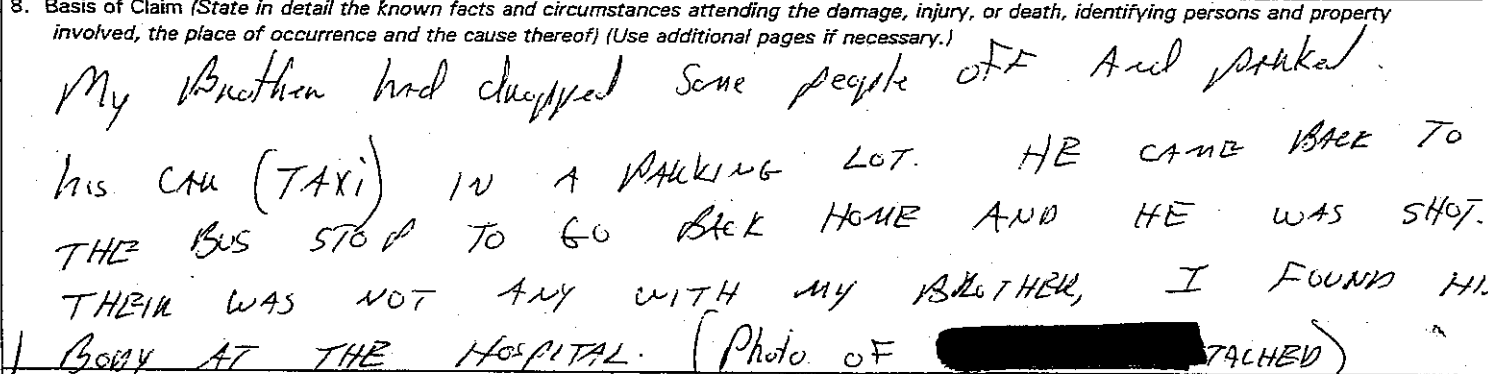 8. Basis of Claim (State in detail the known facts and circumstances attending the damage, injury, or death, identifying persons and property
involved, the place of occurrence and the cause thereof) (Use additional pages if necessary.)
My Brother had dropped some people off And parked.
his CAR (TAXi) IN A PARKING LOT. HE CAME BACK TO
THE BUS STOP TO GO BACK HOME AND HE WAS SHOT.
THEIR WAS NOT ANY WITH MY BROTHER, I FOUND HIS
BODY AT THE HOSPITAL. (Photo OF TACHED)